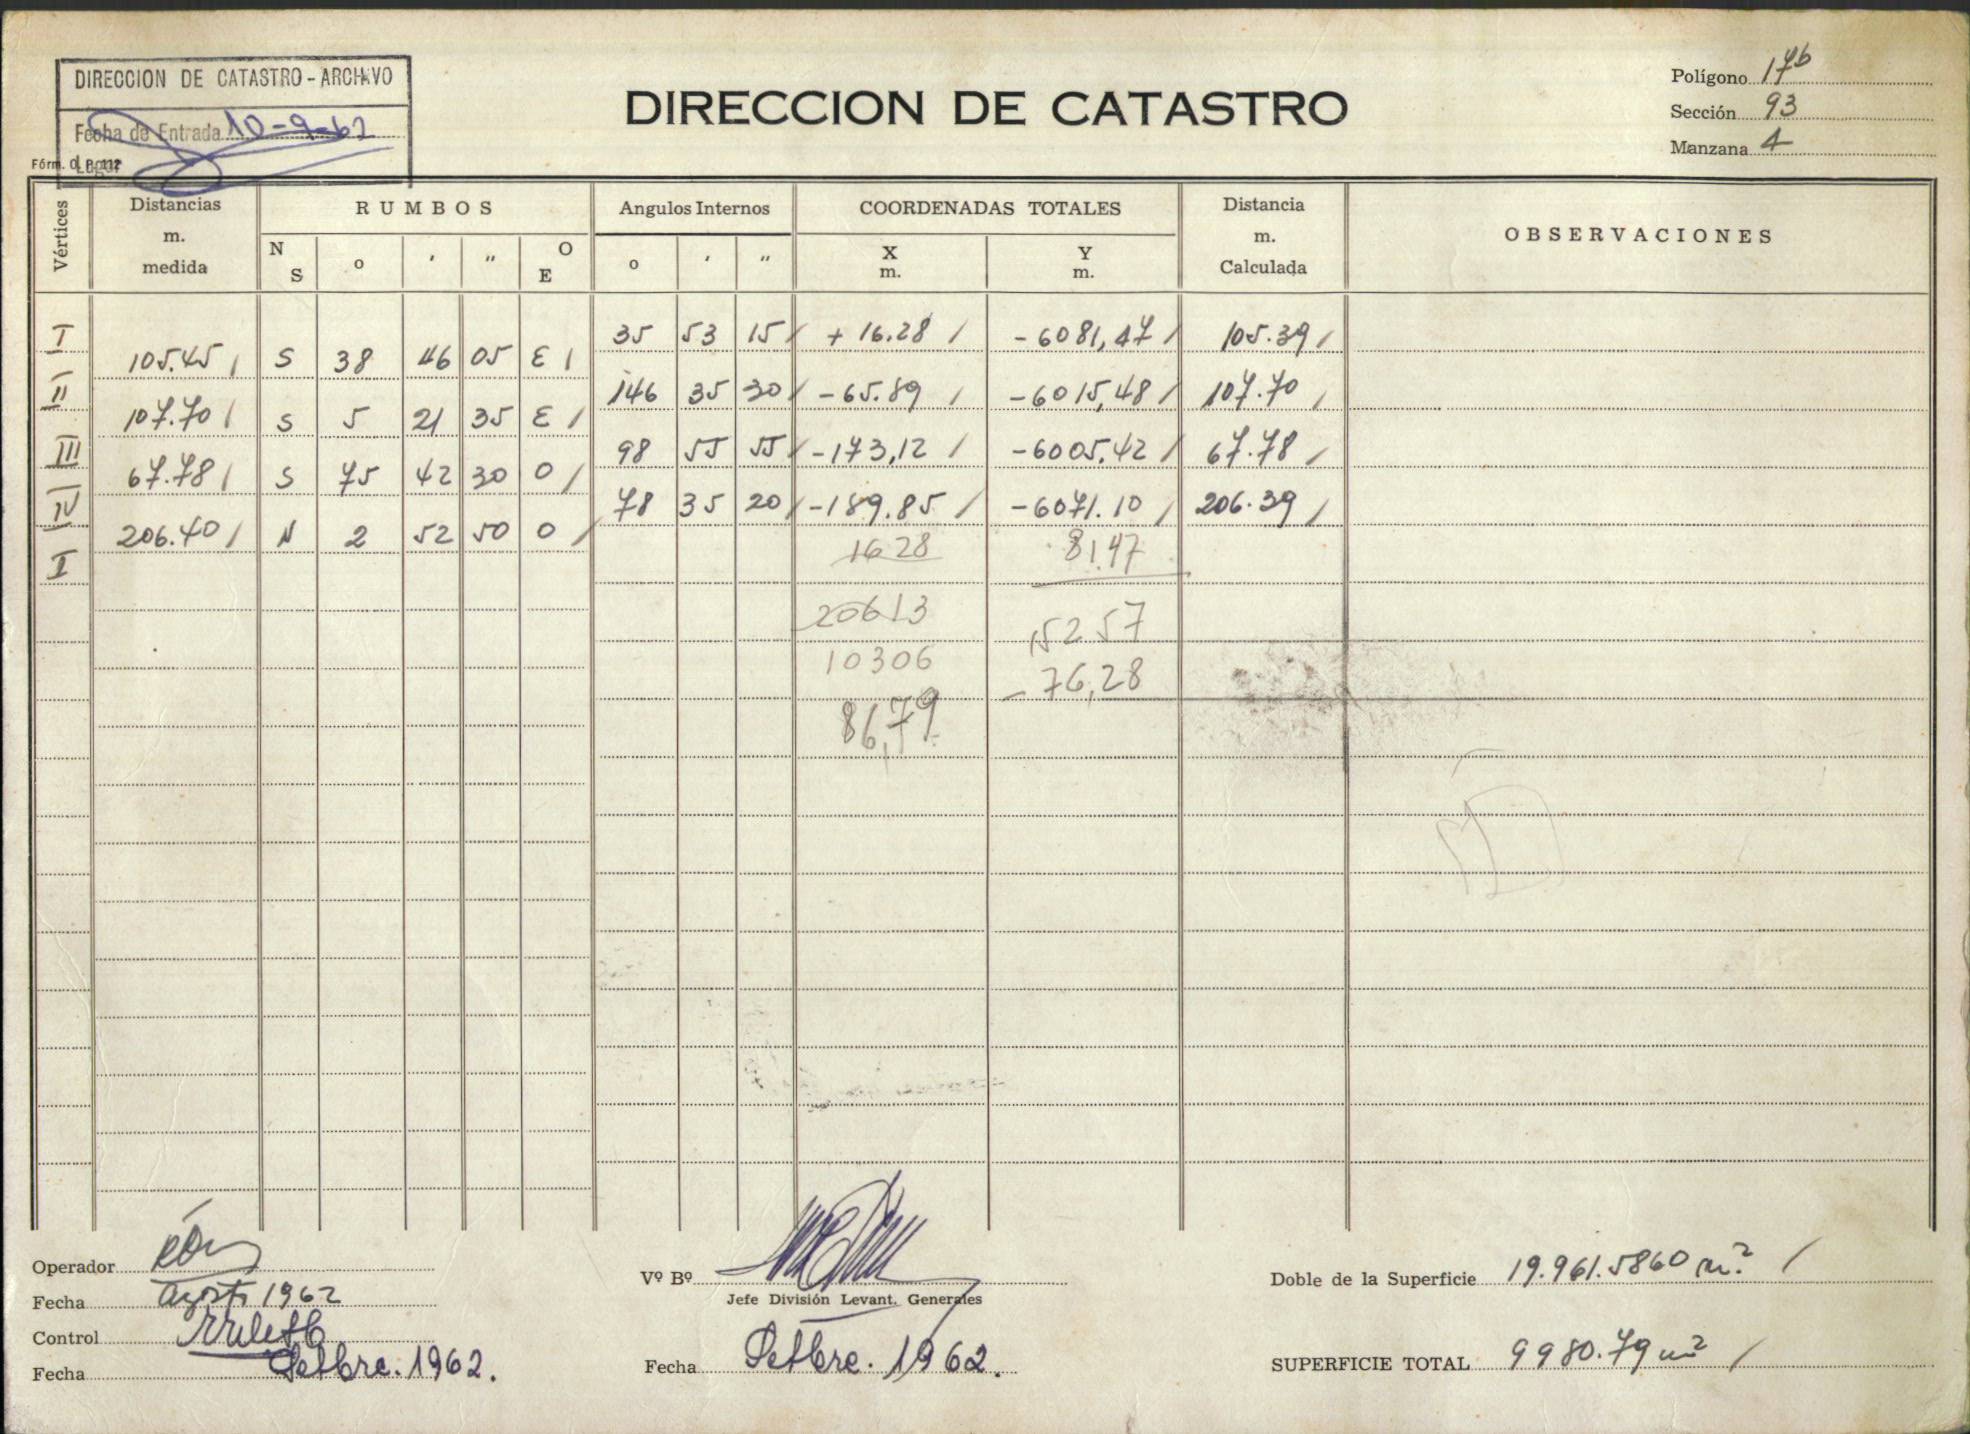 DIRECCION DE CATASTRO - ARCHIVO
Fecha de Entrada 10-9-62
Lugar
Fórm. O. P. 112
DIRECCION DE CATASTRO
Polígono 17b
Sección 93
Manzana 4
Vértices
Distancias m. medida
RUMBOS
N S o ' " O E
Angulos Internos
o ' "
COORDENADAS TOTALES
X m. Y m.
Distancia m. Calculada
OBSERVACIONES
I 35 53 15 / + 16.28 / -6081,47 / 105.39 /
105.45 / S 38 46 05 E /
II 146 35 30 / -65.89 / -6015,48 / 107.70 /
107.70 / S 5 21 35 E /
III 98 55 55 / -173,12 / -6005.42 / 67.78 /
67.78 / S 75 42 30 O /
IV 78 35 20 / -189.85 / -6071.10 / 206.39 /
206.40 / N 2 52 50 O /
I 1628 81.47
20613 152.57
10306 -76,28
86,79
Operador
Fecha Agosto 1962
Control
Fecha Setbre. 1962.
Vº Bº
Jefe División Levant. Generales
Fecha Setbre. 1962.
Doble de la Superficie 19.961.5860 m² /
SUPERFICIE TOTAL 9980.79 m² /